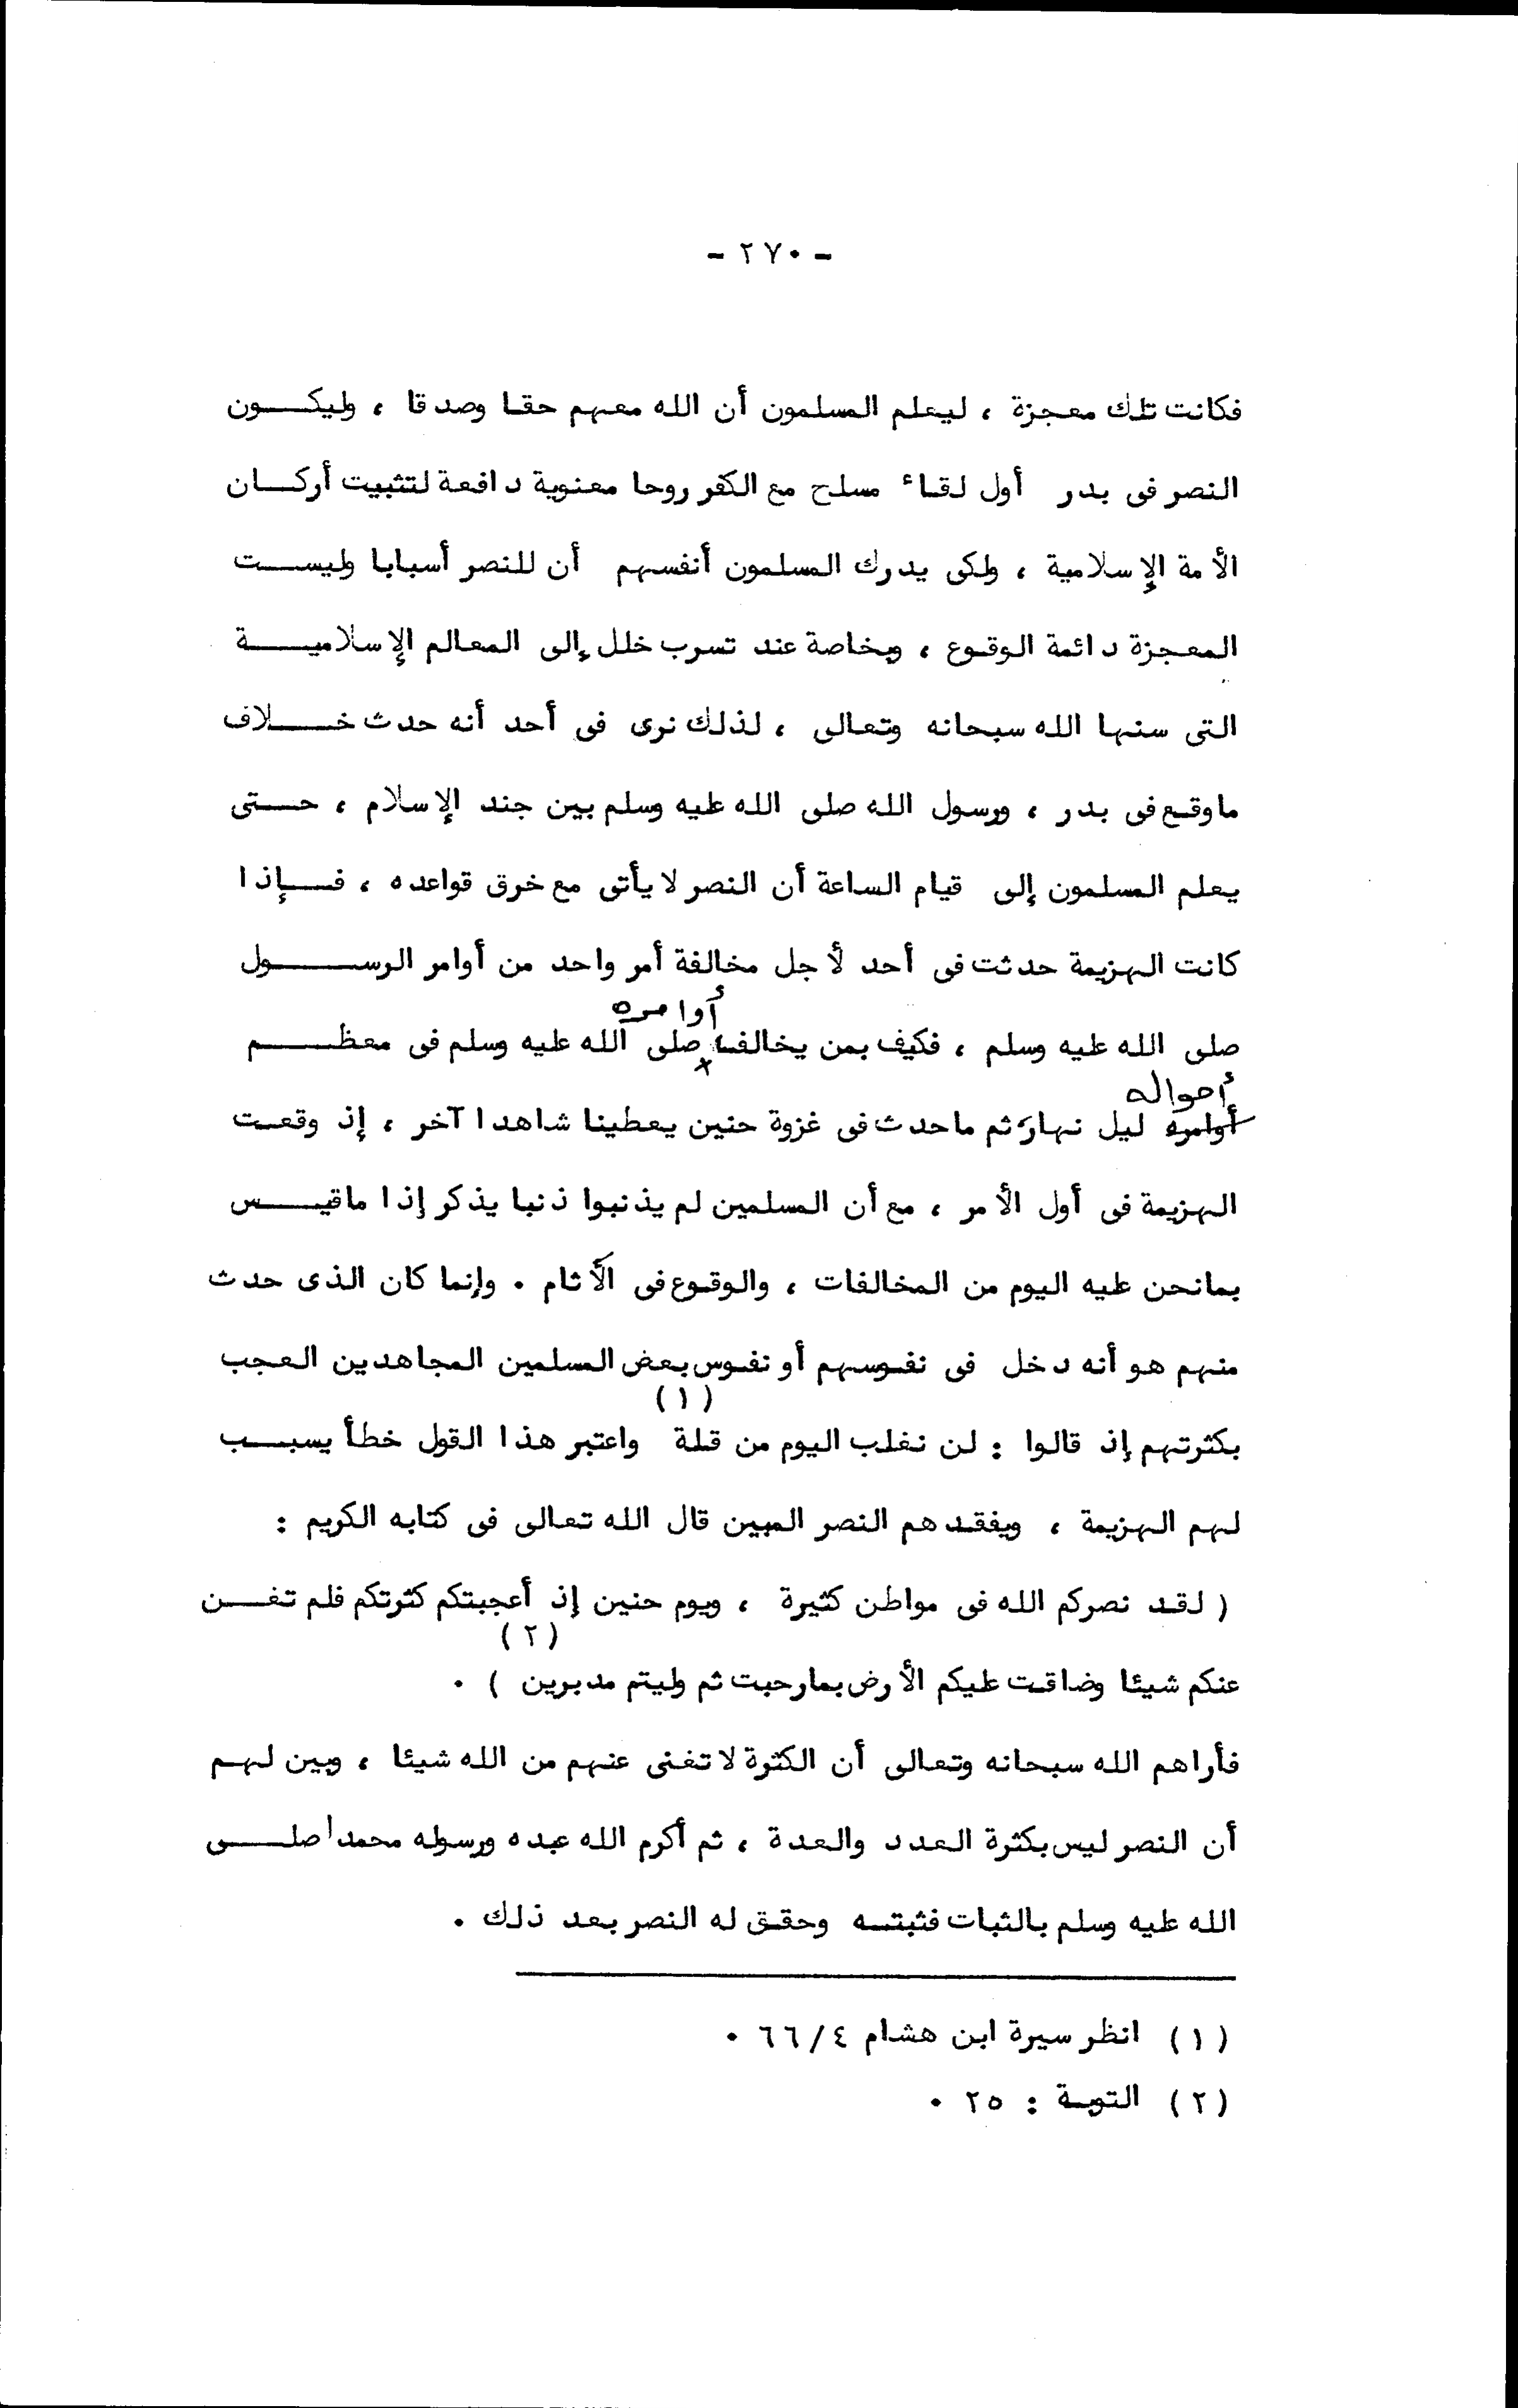 - ٢٧٠ -
فكانت تلك معجزة ، ليعلم المسلمون أن الله معهم حقا وصدقا ، وليكون
النصر فى بدر أول لقاء مسلح مع الكفر روحا معنوية دافعة لتثبيت أركان
الأمة الإسلامية ، ولكى يدرك المسلمون أنفسهم أن للنصر أسبابا وليست
المعجزة دائمة الوقوع ، وبخاصة عند تسرب خلل إلى المعالم الإسلامية
التى سنها الله سبحانه وتعالى ، لذلك نرى فى أحد أنه حدث خلاف
ماوقع فى بدر ، ورسول الله صلى الله عليه وسلم بين جند الإسلام ، حتى
يعلم المسلمون إلى قيام الساعة أن النصر لا يأتى مع خرق قواعده ، فإذا
كانت الهزيمة حدثت فى أحد لأجل مخالفة أمر واحد من أوامر الرسول
أوامره
صلى الله عليه وسلم ، فكيف بمن يخالف صلى الله عليه وسلم فى معظم
أحواله
أوامره ليل نهار ثم ماحدث فى غزوة حنين يعطينا شاهدا آخر ، إذ وقعت
الهزيمة فى أول الأمر ، مع أن المسلمين لم يذنبوا ذنبا يذكر إذا ماقيس
بمانحن عليه اليوم من المخالفات ، والوقوع فى الآثام . وإنما كان الذى حدث
منهم هو أنه دخل فى نفوسهم أو نفوس بعض المسلمين المجاهدين العجب
بكثرتهم إذ قالوا : لن نغلب اليوم من قلة (١) واعتبر هذا القول خطأ يسبب
لهم الهزيمة ، ويفقدهم النصر المبين قال الله تعالى فى كتابه الكريم :
( لقد نصركم الله فى مواطن كثيرة ، ويوم حنين إذ أعجبتكم كثرتكم فلم تغن
عنكم شيئا وضاقت عليكم الأرض بمارحبت ثم وليتم مدبرين ) (٢) .
فأراهم الله سبحانه وتعالى أن الكثرة لا تغنى عنهم من الله شيئا ، وبين لهم
أن النصر ليس بكثرة العدد والعدة ، ثم أكرم الله عبده ورسوله محمدا صلى
الله عليه وسلم بالثبات فثبته وحقق له النصر بعد ذلك .
(١) انظر سيرة ابن هشام ٤/٦٦ .
(٢) التوبة : ٢٥ .